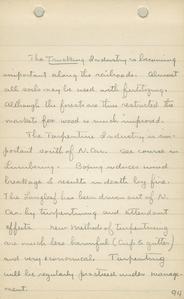 The Trucking Industry is becoming
important along the railroads. Almost
all soils may be used with fertilizing.
Although the forests are thus restricted the
markets for wood is much improved.
The Turpentine Industry is im-
portant south of N. Car. See course in
Lumbering. Boxing induces wind
breakage & results in death by fire.
The Longleaf has been driven out of N.
Car. by turpentining and attendant
effects. New methods of turpentining
are much less harmful (Cup & gutter)
and very economical. Turpentining
will be regularly practised under manage-
ment.
94